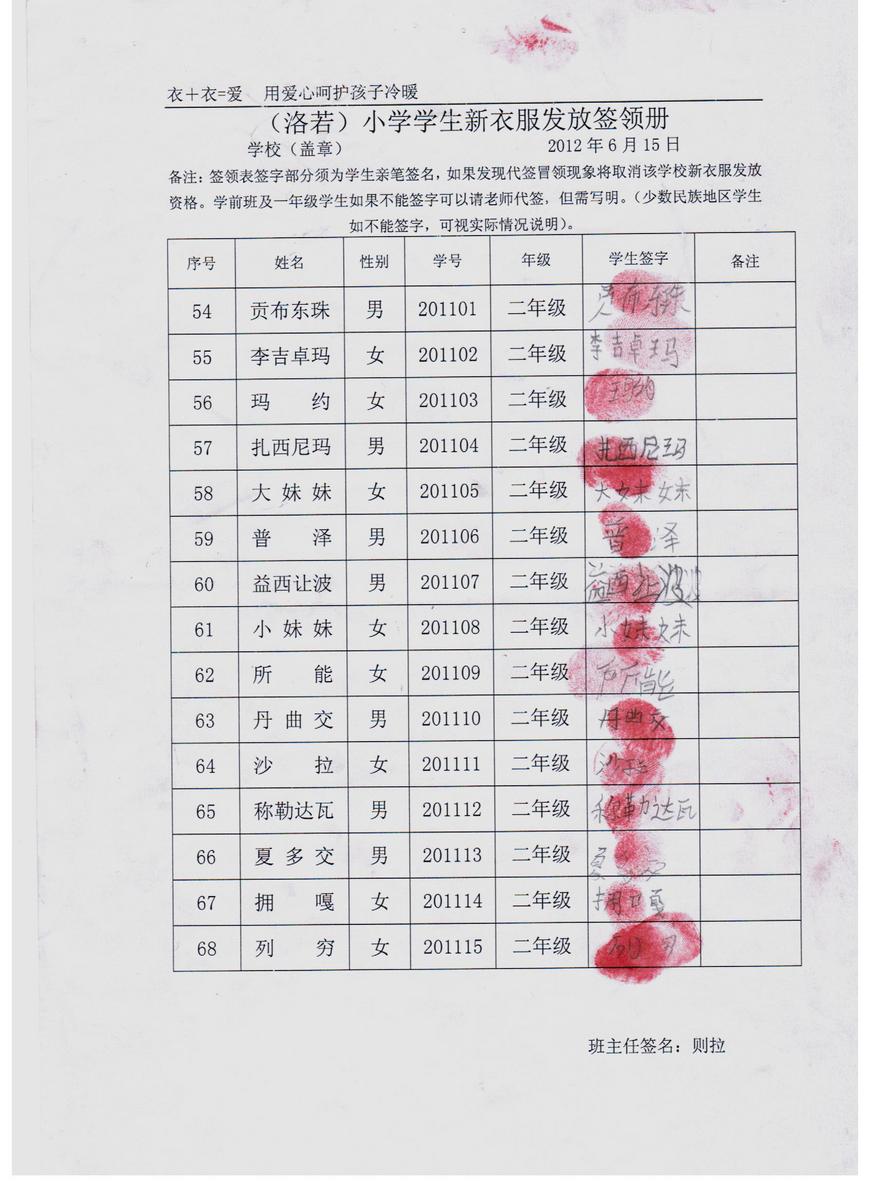 衣＋衣=爱 用爱心呵护孩子冷暖
（洛若）小学学生新衣服发放签领册
学校（盖章） 2012 年 6 月 15 日
备注：签领表签字部分须为学生亲笔签名，如果发现代签冒领现象将取消该学校新衣服发放
资格。学前班及一年级学生如果不能签字可以请老师代签，但需写明。（少数民族地区学生
如不能签字，可视实际情况说明）。
序号 姓名 性别 学号 年级 学生签字 备注
54 贡布东珠 男 201101 二年级 贡布东珠
55 李吉卓玛 女 201102 二年级 李吉卓玛
56 玛 约 女 201103 二年级 玛约
57 扎西尼玛 男 201104 二年级 扎西尼玛
58 大 妹 妹 女 201105 二年级 大妹妹
59 普 泽 男 201106 二年级 普泽
60 益西让波 男 201107 二年级 益西让波
61 小 妹 妹 女 201108 二年级 小妹妹
62 所 能 女 201109 二年级 所能
63 丹 曲 交 男 201110 二年级 丹曲交
64 沙 拉 女 201111 二年级 沙拉
65 称勒达瓦 男 201112 二年级 称勒达瓦
66 夏 多 交 男 201113 二年级 夏
67 拥 嘎 女 201114 二年级 拥嘎
68 列 穷 女 201115 二年级 列
班主任签名：则拉